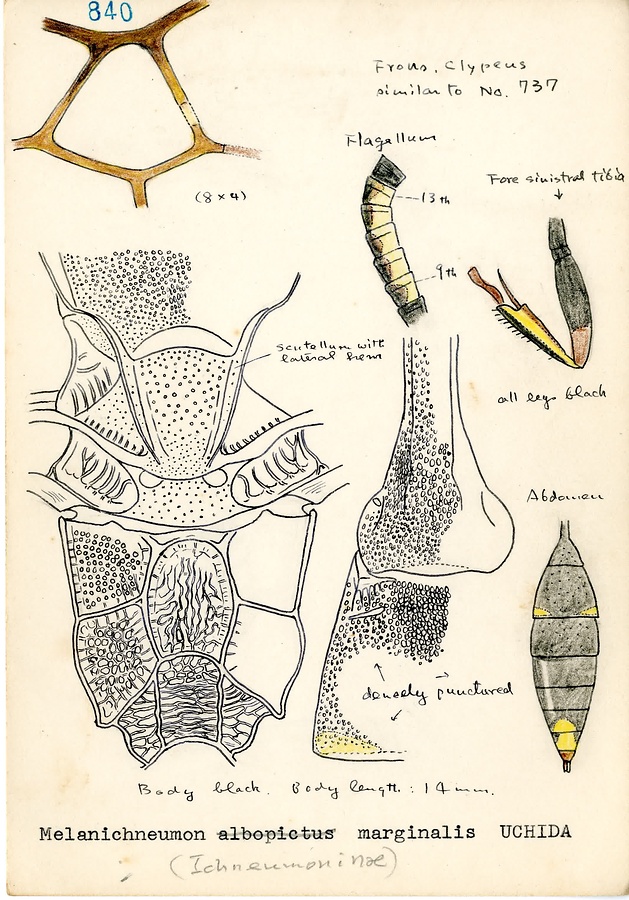 840
Frons, Clypeus
similar to No. 737
Flagellum
Fore sinistral tibia
13th
(8×4)
9th
scutellum with
lateral hem
all legs black
Abdomen
densely punctured
Body black. Body length: 14mm.
Melanichneumon albopictus marginalis UCHIDA
(Ichneumoninae)